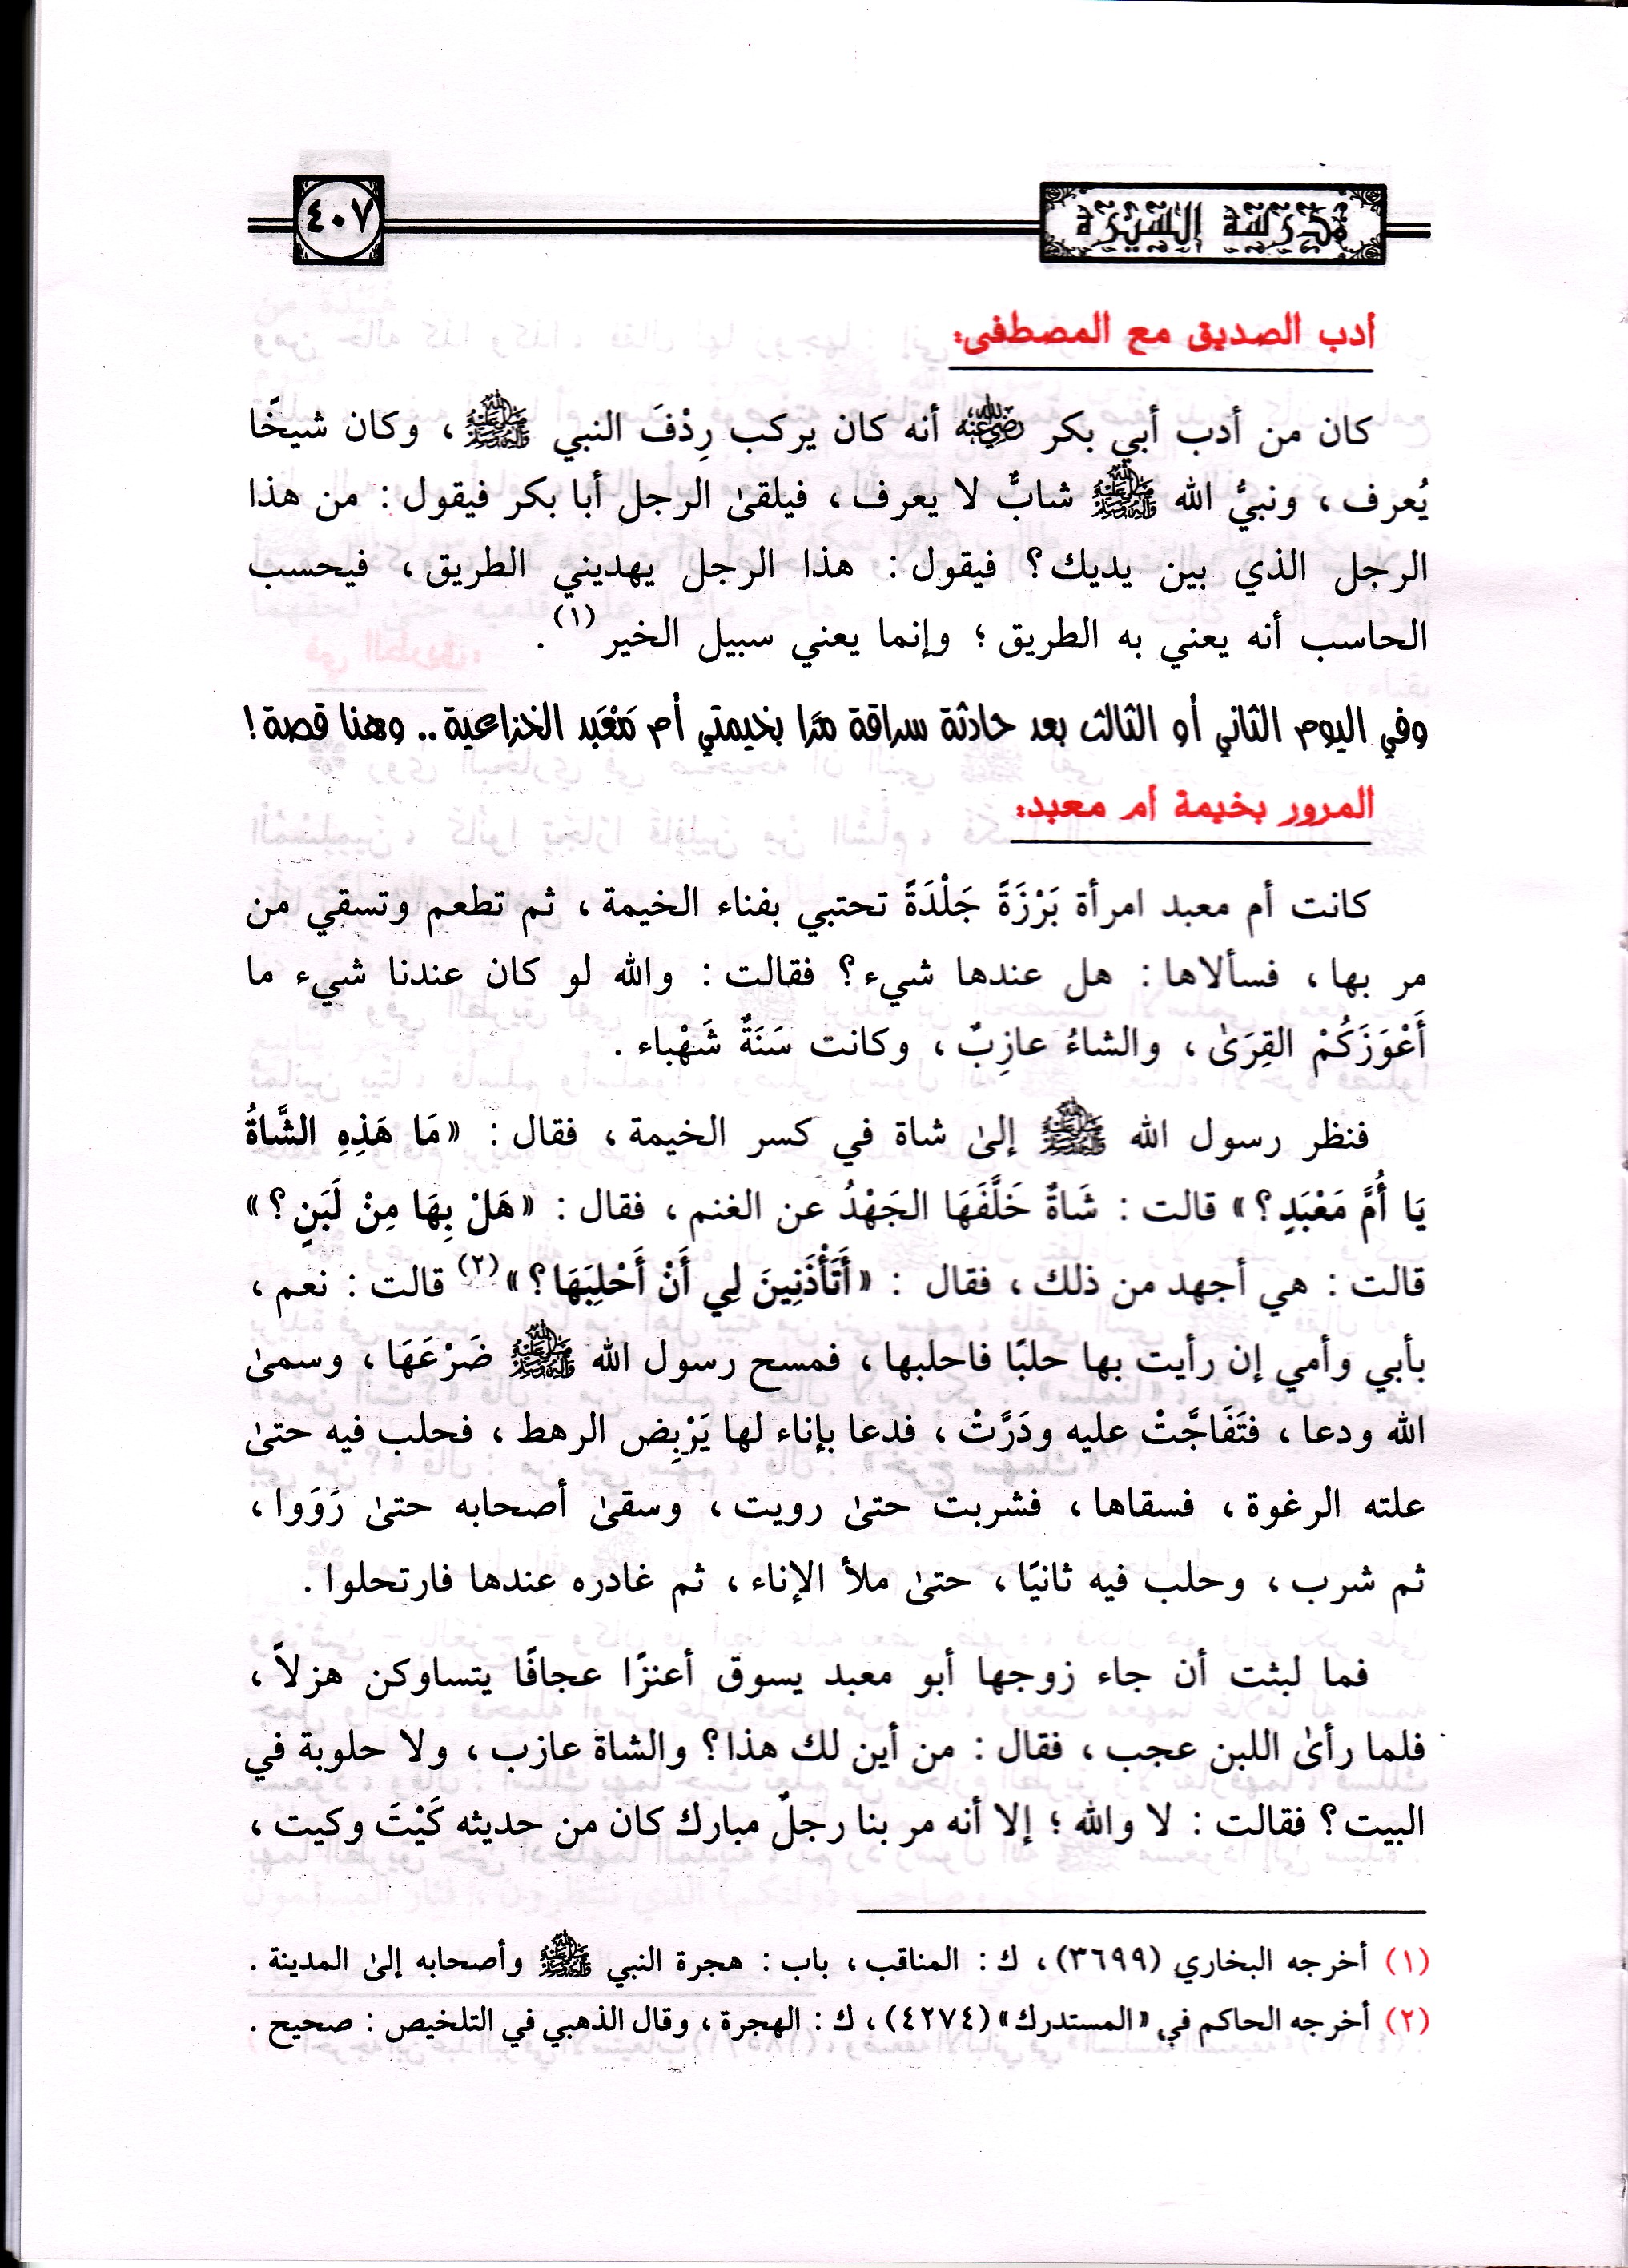 مدرسة السيرة
٤٠٧
أدب الصديق مع المصطفى:
كان من أدب أبي بكر رضي الله عنه أنه كان يركب رِدْفَ النبي ﷺ ، وكان شيخًا
يُعرف ، ونبيُّ الله ﷺ شابٌّ لا يعرف ، فيلقىٰ الرجل أبا بكر فيقول : من هذا
الرجل الذي بين يديك ؟ فيقول : هذا الرجل يهديني الطريق ، فيحسب
الحاسب أنه يعني به الطريق ؛ وإنما يعني سبيل الخير (١) .
وفي اليوم الثاني أو الثالث بعد حادثة سراقة مَرَّا بخيمتي أم مَعْبَد الخزاعية .. وهنا قصة !
المرور بخيمة أم معبد:
كانت أم معبد امرأة بَرْزَةً جَلْدَةً تحتبي بفناء الخيمة ، ثم تطعم وتسقي من
مر بها ، فسألاها : هل عندها شيء ؟ فقالت : والله لو كان عندنا شيء ما
أَعْوَزَكُمْ القِرَىٰ ، والشاءُ عازِبٌ ، وكانت سَنَةٌ شَهْباء .
فنظر رسول الله ﷺ إلىٰ شاة في كسر الخيمة ، فقال : «مَا هَذِهِ الشَّاةُ
يَا أُمَّ مَعْبَدٍ ؟» قالت : شَاةٌ خَلَّفَهَا الجَهْدُ عن الغنم ، فقال : «هَلْ بِهَا مِنْ لَبَنٍ ؟»
قالت : هي أجهد من ذلك ، فقال : «أَتَأْذَنِينَ لِي أَنْ أَحْلِبَهَا ؟» (٢) قالت : نعم ،
بأبي وأمي إن رأيت بها حلبًا فاحلبها ، فمسح رسول الله ﷺ ضَرْعَهَا ، وسمىٰ
الله ودعا ، فتَفَاجَّتْ عليه ودَرَّتْ ، فدعا بإناء لها يَرْبِض الرهط ، فحلب فيه حتىٰ
علته الرغوة ، فسقاها ، فشربت حتىٰ رويت ، وسقىٰ أصحابه حتىٰ رَوَوا ،
ثم شرب ، وحلب فيه ثانيًا ، حتىٰ ملأ الإناء ، ثم غادره عندها فارتحلوا .
فما لبثت أن جاء زوجها أبو معبد يسوق أعنزًا عجافًا يتساوكن هزلاً ،
فلما رأىٰ اللبن عجب ، فقال : من أين لك هذا ؟ والشاة عازب ، ولا حلوبة في
البيت ؟ فقالت : لا والله ؛ إلا أنه مر بنا رجلٌ مبارك كان من حديثه كَيْتَ وكيت ،
(١) أخرجه البخاري (٣٦٩٩) ، ك : المناقب ، باب : هجرة النبي ﷺ وأصحابه إلىٰ المدينة .
(٢) أخرجه الحاكم في «المستدرك» (٤٢٧٤) ، ك : الهجرة ، وقال الذهبي في التلخيص : صحيح .